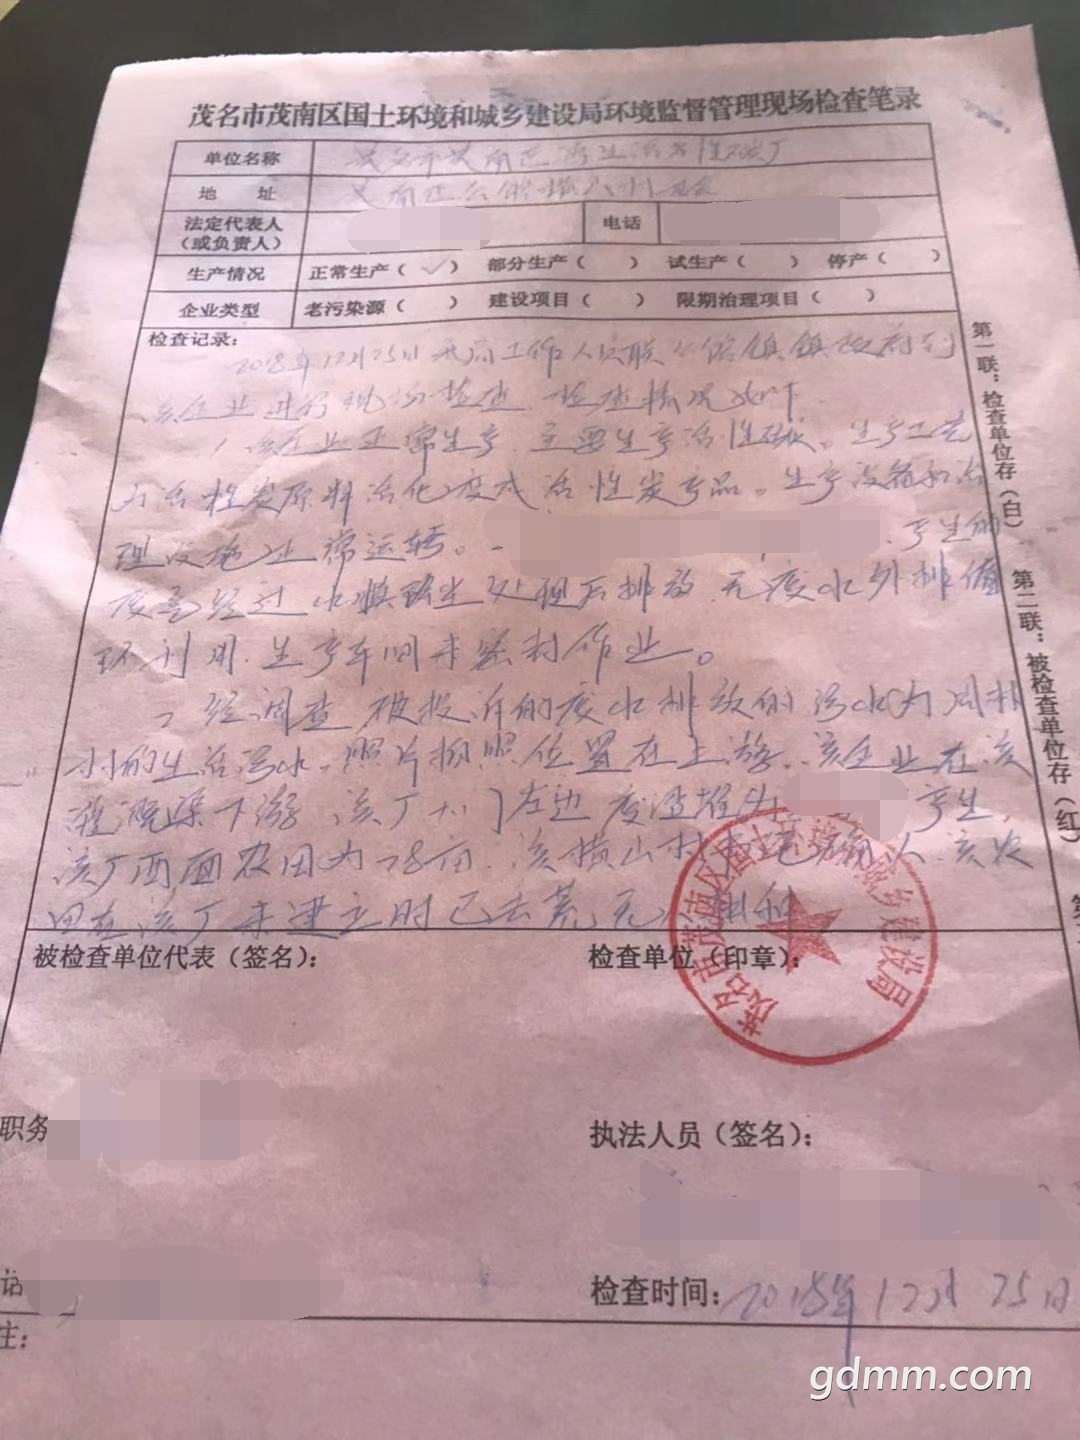 茂名市茂南区国土环境和城乡建设局环境监督管理现场检查笔录
单位名称 茂名市茂南区 活性碳厂
地 址 茂南区公馆横山村
法定代表人（或负责人） 电话
生产情况 正常生产（✓） 部分生产（ ） 试生产（ ） 停产（ ）
企业类型 老污染源（ ） 建设项目（ ） 限期治理项目（ ）
检查记录：
2018年12月25日我局工作人员联公馆镇镇政府到
该企业进行现场检查，检查情况如下
1、该企业正常生产，主要生产活性碳。生产工艺
为活性炭原料活化变成活性炭产品。生产设备和治
理设施正常运转。 产生的
废气经过水膜除尘处理后排放，无废水外排循
环利用，生产车间未密封作业。
2、经调查被投诉的废水排放的污水为周林
村的生活污水，照片拍照位置在上游，该企业在该
灌溉渠下游，该厂大门左边废渣堆为 产生，
该厂西面农田为28亩，该横山村 确认该次
田在该厂未建立时已丢荒，无人耕种
被检查单位代表（签名）：
检查单位（印章）：
茂名市茂南区国土环境和城乡建设局
职务
执法人员（签名）：
话
检查时间：2018年12月25日
注：
第一联：检查单位存（白）
第二联：被检查单位存（红）
第
gdmm.com